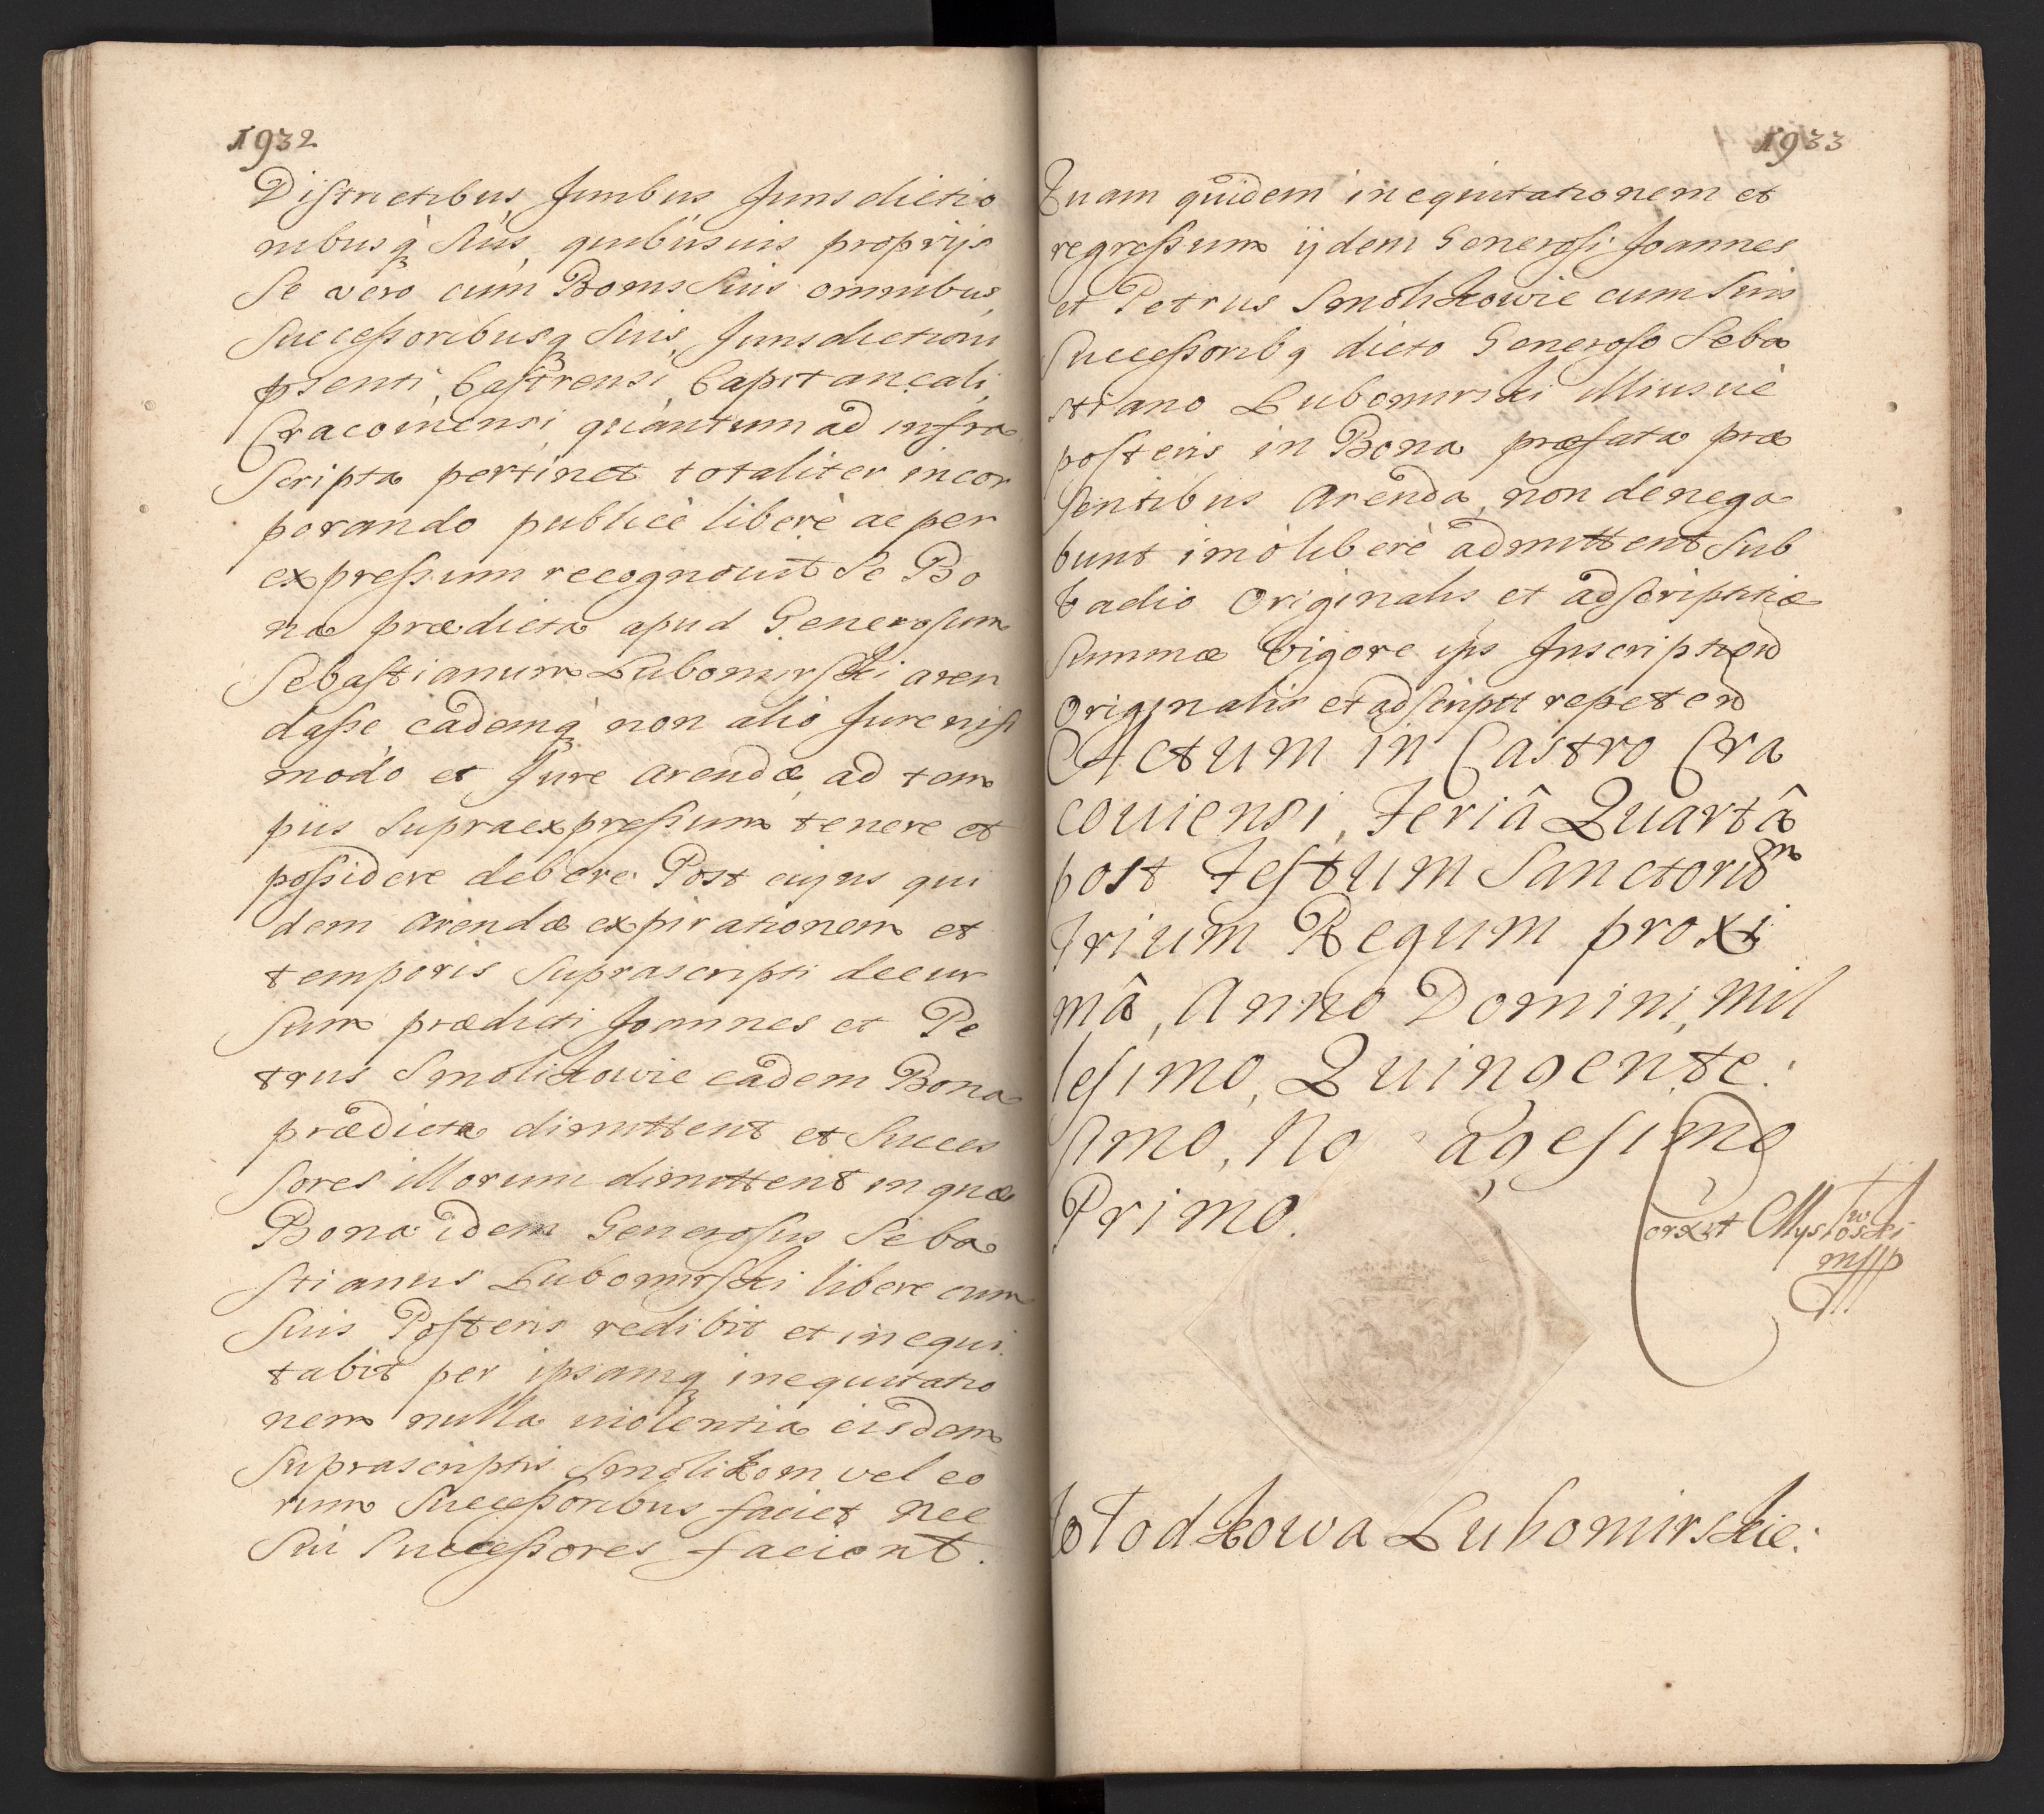 1932
Districtibus, Juribus Jurisdictio
nibusq́ suis, quibusuis proprijs
Se vero cum Bonis Suis omnibus,
Successoribusq Suis, Jurisdictioni
pņti, Castrensi, Capitaneali,
Cracouiensi, quantum ad infra
Scripta pertinet totaliter incor
porando publicè liberè ac per
expressum recognouit Se Bo
na prædicta apud Generosum
Sebastianum Lubomirski aren
dasse, eademq́ non alio Jure nisi
modo et Jure arendæ, ad tem
pus Supraexpressum tenere et
possidere debere. Post cujus qui
dem arendæ expirationem et
temporis Suprascripti decur
sum prædicti Joannes et Pe
trus Smolikowie eadem Bona
prædicta dimittent et Succes
sores illorum dimittent in quæ
Bona idem Generosus Seba
stianus Lubomirski libere cum
Suis Posteris redibit et inequi
tabit per ipsamq inequitatio
nem nulla uiolentia eisdem
Suprascriptis Smolikom vel eo
rum Successoribus faciet nec
Sui Successores facient.
1933
Quam quidem inequitationem et
regressum ijdem Generosi Joannes
et Petrus Smolikowie cum Suis
Successoribq dicto Generoso Seba
stiano Lubomirski illiusue
posteris in Bona præfata præ
sentibus arenda, non denega
bunt imò liberè admittent Sub
Vadio Originalis et adscriptitiæ
Summæ Vigore ips Inscription
Originalis et adscriptt repetend
Actum in Castro Cra
couiensi, Feriâ Quartâ
post Festum Sanctorum
Trium Regum proxi
mâ, Anno Domini, Mil
lesimo, Quingente:
simo, No agesimo
Primo.
orxit Myszkowski
mpp
Kołodkowa Lubomirskie: